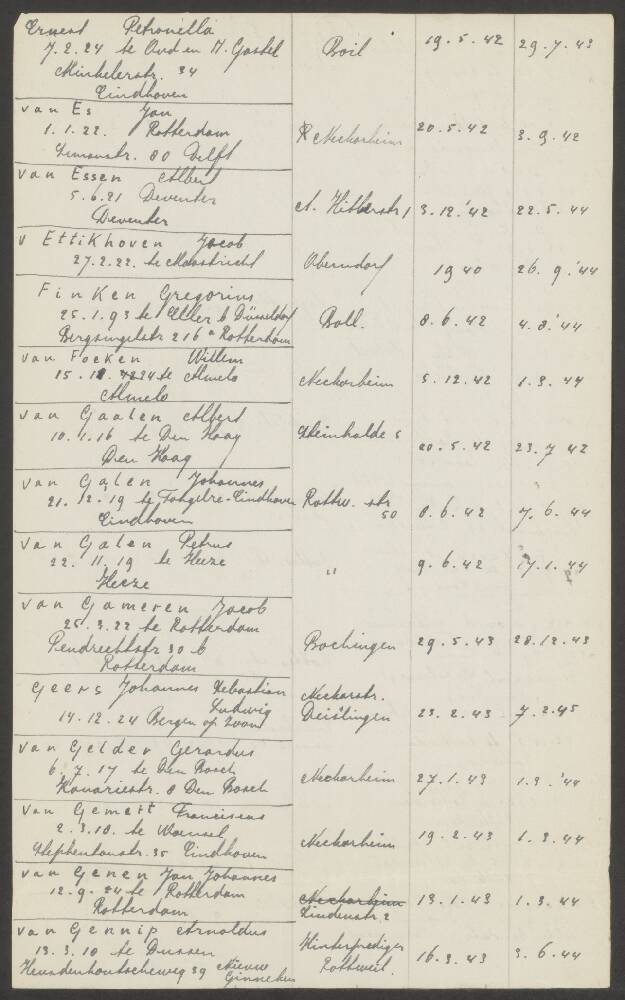 Ernest Petronella
7.2.24 te Oud en N. Gastel Boil 19.5.42 29.7.43
Minkelerstr. 34
Eindhoven
van Es Jan
1.1.22. Rotterdam Neckarheim 20.5.42 3.9.42
80 Delft
van Essen Albert
5.6.21 Deventer A. Hitlerstr 1 3.12.'42 22.5.44
Deventer
v Ettikhoven Jacob
27.2.22. te Maastricht Oberndorf 1940 26.9.'44
Finken Gregorius
25.1.93 te Eller b Düsseldorf Boll. 8.6.42 4.8.'44
Bergsingelstr 216a Rotterdam
van Focken Willem
te Almelo Neckarheim 5.12.42 1.3.44
Almelo
van Gaalen Albert
10.1.16 te Den Haag Steinhalde 5 20.5.42 23.7 42
Den Haag
van Galen Johannes
21.12.19 te Eindhoven Rottw. str 50 8.6.42 7.6.44
Eindhoven
van Galen Petrus
22.11.19 te Heeze " 9.6.42 17.1.44
Heeze
van Gameren Jacob
25.3.22 te Rotterdam Bochingen 29.5.43 28.12.43
Pendrechtstr 30 b
Rotterdam
Geers Johannes Sebastian Neckarstr.
Ludwig Deislingen 23.2.43 7.2.45
14.12.24 Bergen op Zoom
van Gelder Gerardus
6.7.17 te Den Bosch Neckarheim 27.1.43 1.3.'44
Kanariestr. 8 Den Bosch
van Gemert Franciscus
2.3.18. te Woensel Neckarheim 19.2.43 1.3.44
Stephenlanstr. 35 Eindhoven
van Genen Jan Johannes
12.9.24 te Rotterdam Neckarheim 13.1.43 1.3.44
Rotterdam Lindenstr. 2
van Gennip Arnoldus
13.3.18 te Dussen Hinterprediger 16.3.43 3.6.44
Heusdenhoutscheweg 39 Nieuw Rottweil.
Ginneken